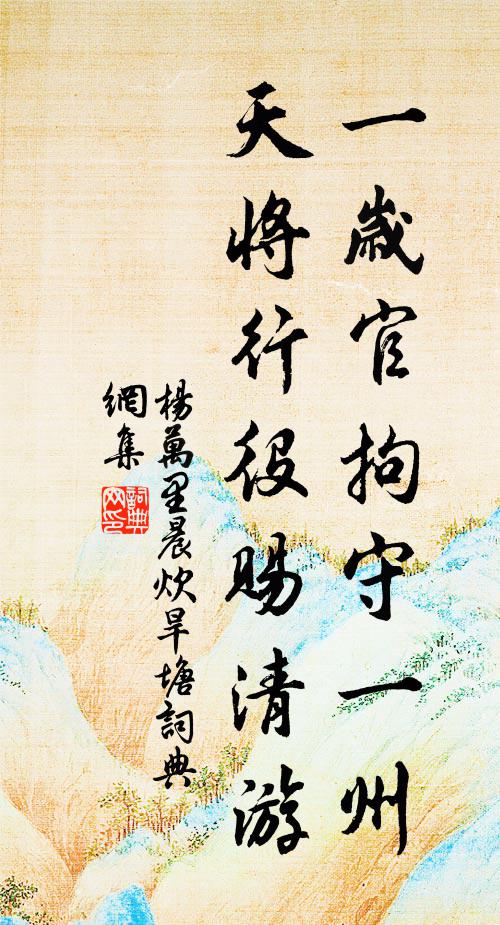 一歲官拘守一州
天將行役賜清游
楊萬里晨炊旱塘詞典
網集
詞典
网印